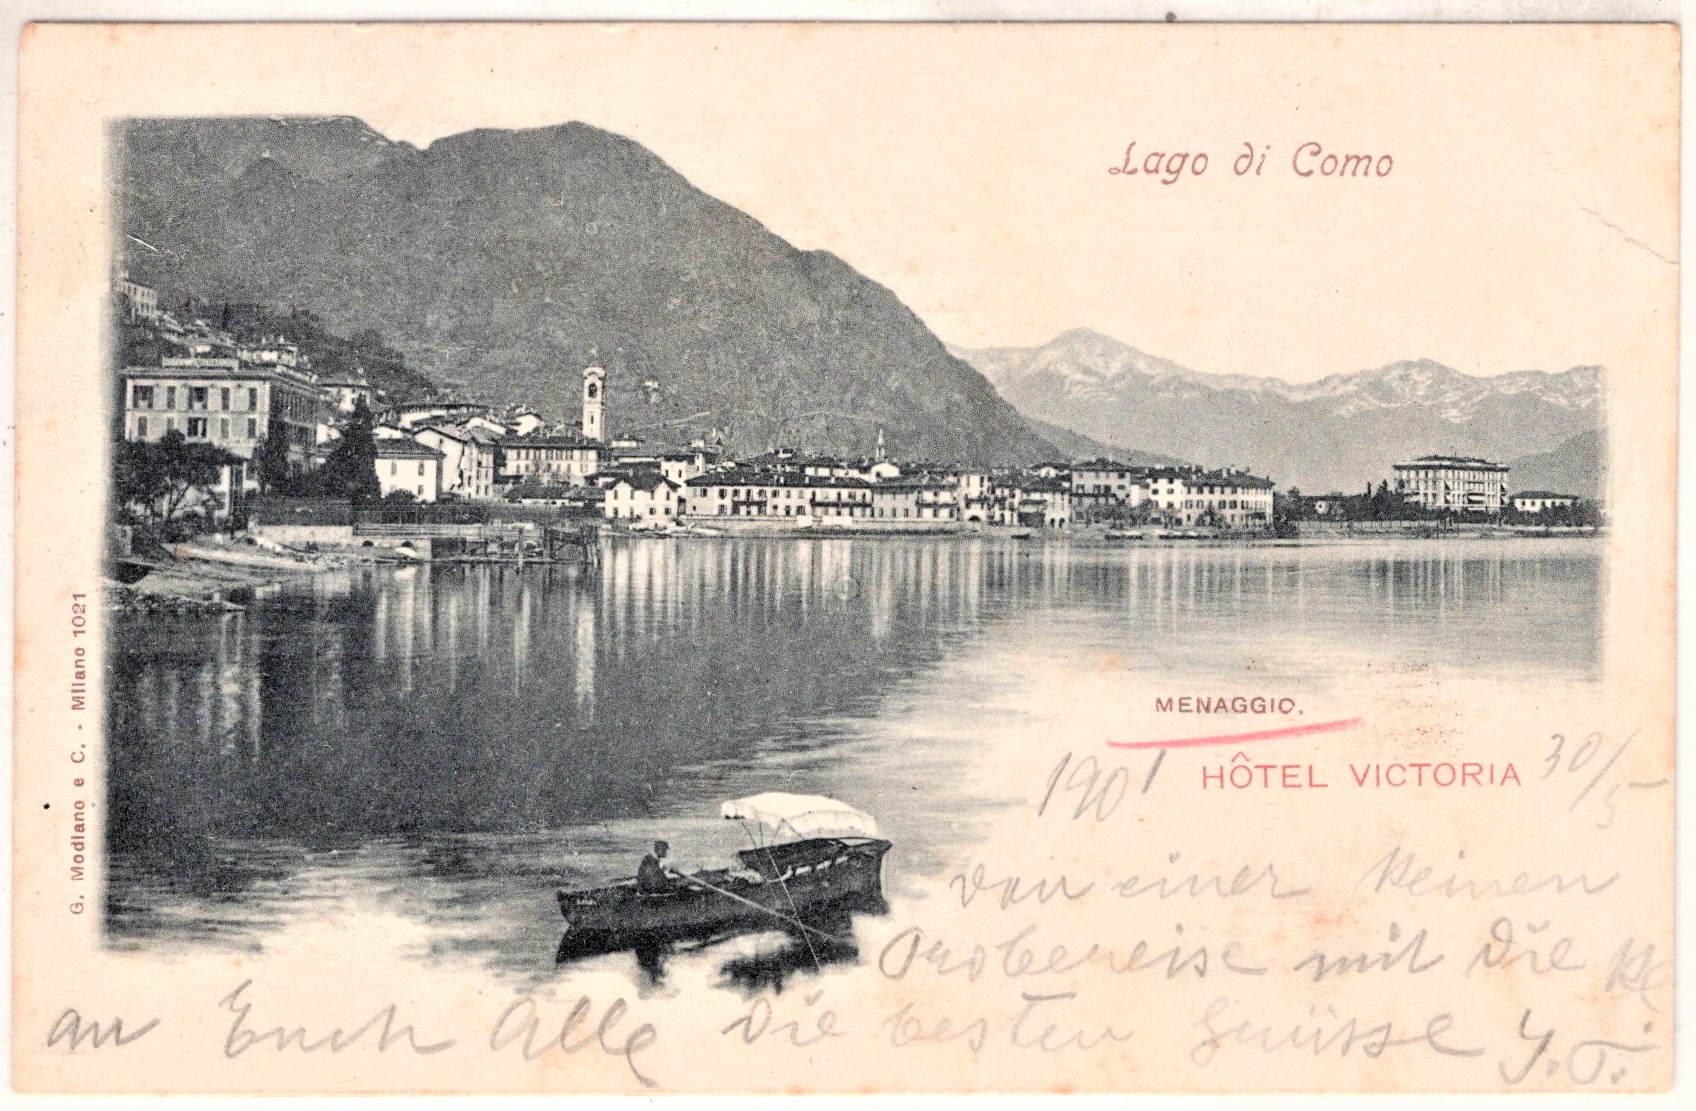 Lago di Como
G. Modiano e C. - Milano 1021
MENAGGIO.
1901 HÔTEL VICTORIA 30/5
Von einer kleinen
mit Die
an Euch Alle Die besten Grüsse J. T.